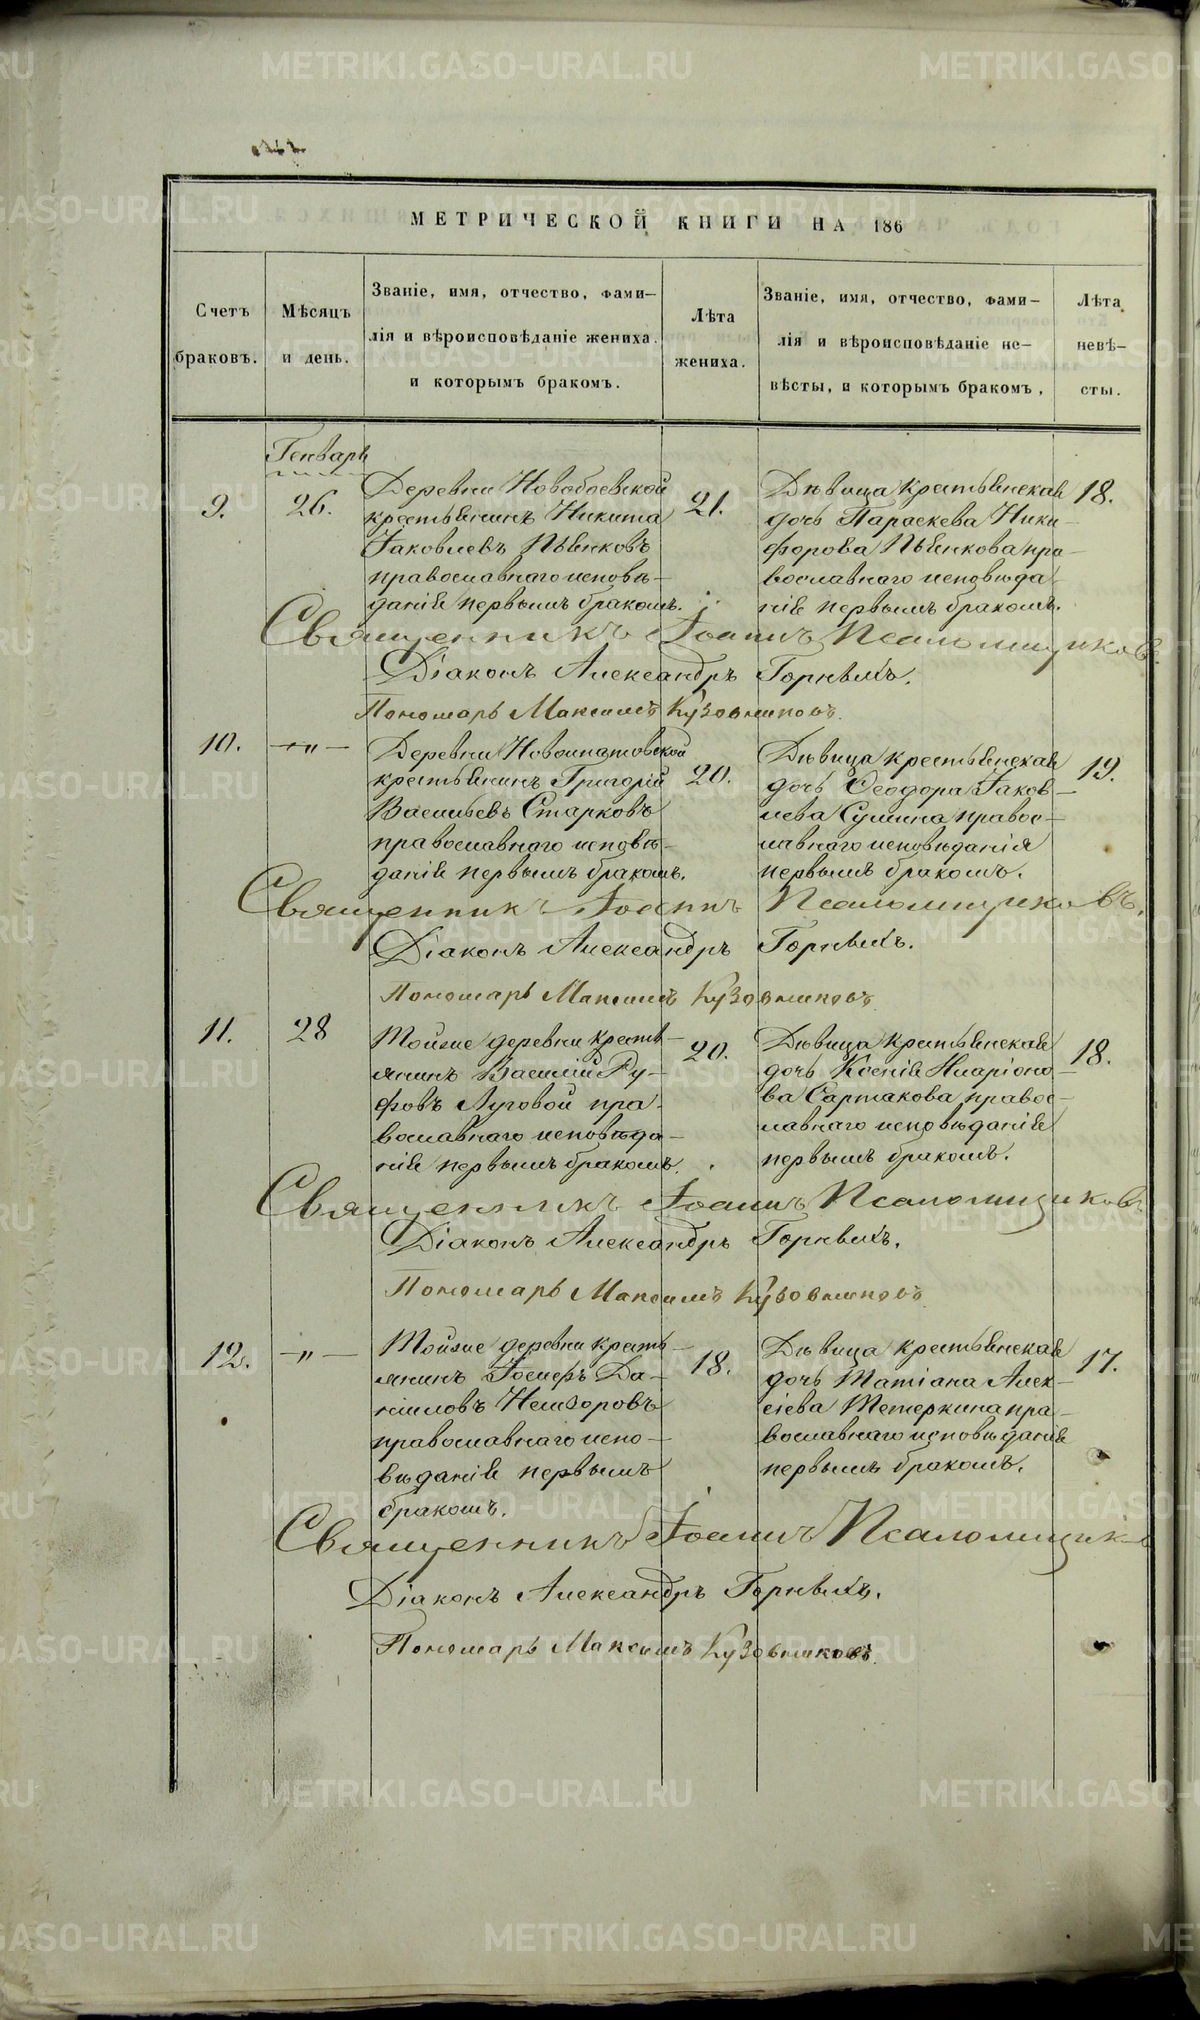 МЕТРИЧЕСКОЙ КНИГИ НА 186
Счетъ браковъ.
Мѣсяцъ и день.
Званіе, имя, отчество, фами-
лія и вѣроисповѣданіе жениха
и которымъ бракомъ.
Лѣта жениха.
Званіе, имя, отчество, фами-
лія и вѣроисповѣданіе не-
вѣсты, и которымъ бракомъ,
Лѣта невѣ-
сты.
Генварь
9. 26.
Деревни Новобоевской
крестьянинъ Никита
Іаковлевъ Пьянковъ
православнаго исповѣ-
данія первымъ бракомъ.
21.
Дѣвица крестьянская
дочь Параскева Ники-
форова Пьянкова пра-
вославнаго исповѣда-
нія первымъ бракомъ.
18.
Священникъ Іоаннъ Псаломщиковъ.
Діаконъ Александръ Горныхъ.
Пономарь Максимъ Кузовниковъ.
10. —"—
Деревни Новоипатовской
крестьянинъ Григорій
Васильевъ Старковъ
православнаго исповѣ-
данія первымъ бракомъ.
20.
Дѣвица крестьянская
дочь Ѳеодора Іаков-
лева Сулина правос-
лавнаго исповѣданія
первымъ бракомъ.
19.
Священникъ Іоаннъ Псаломщиковъ.
Діаконъ Александръ Горныхъ.
Пономарь Максимъ Кузовниковъ
11. 28
Тойже деревни кресть-
янинъ Василій Ру-
фовъ Луговой пра-
вославнаго исповѣда-
нія первымъ бракомъ.
20.
Дѣвица крестьянская
дочь Ксенія Иларіоно-
ва Сартакова правос-
лавнаго исповѣданія
первымъ бракомъ.
18.
Священникъ Іоаннъ Псаломщиковъ
Діаконъ Александръ Горныхъ.
Пономарь Максимъ Кузовниковъ
12. —"—
Тойже деревни кресть-
янинъ Да-
ниловъ
православнаго испо-
вѣданія первымъ
бракомъ.
18.
Дѣвица крестьянская
дочь Татіана Алек-
сіева Тетеркина пра-
вославнаго исповѣданія
первымъ бракомъ.
17.
Священникъ Іоаннъ Псаломщик
Діаконъ Александръ Горныхъ.
Пономарь Максимъ Кузовниковъ.
METRIKI.GASO-URAL.RU